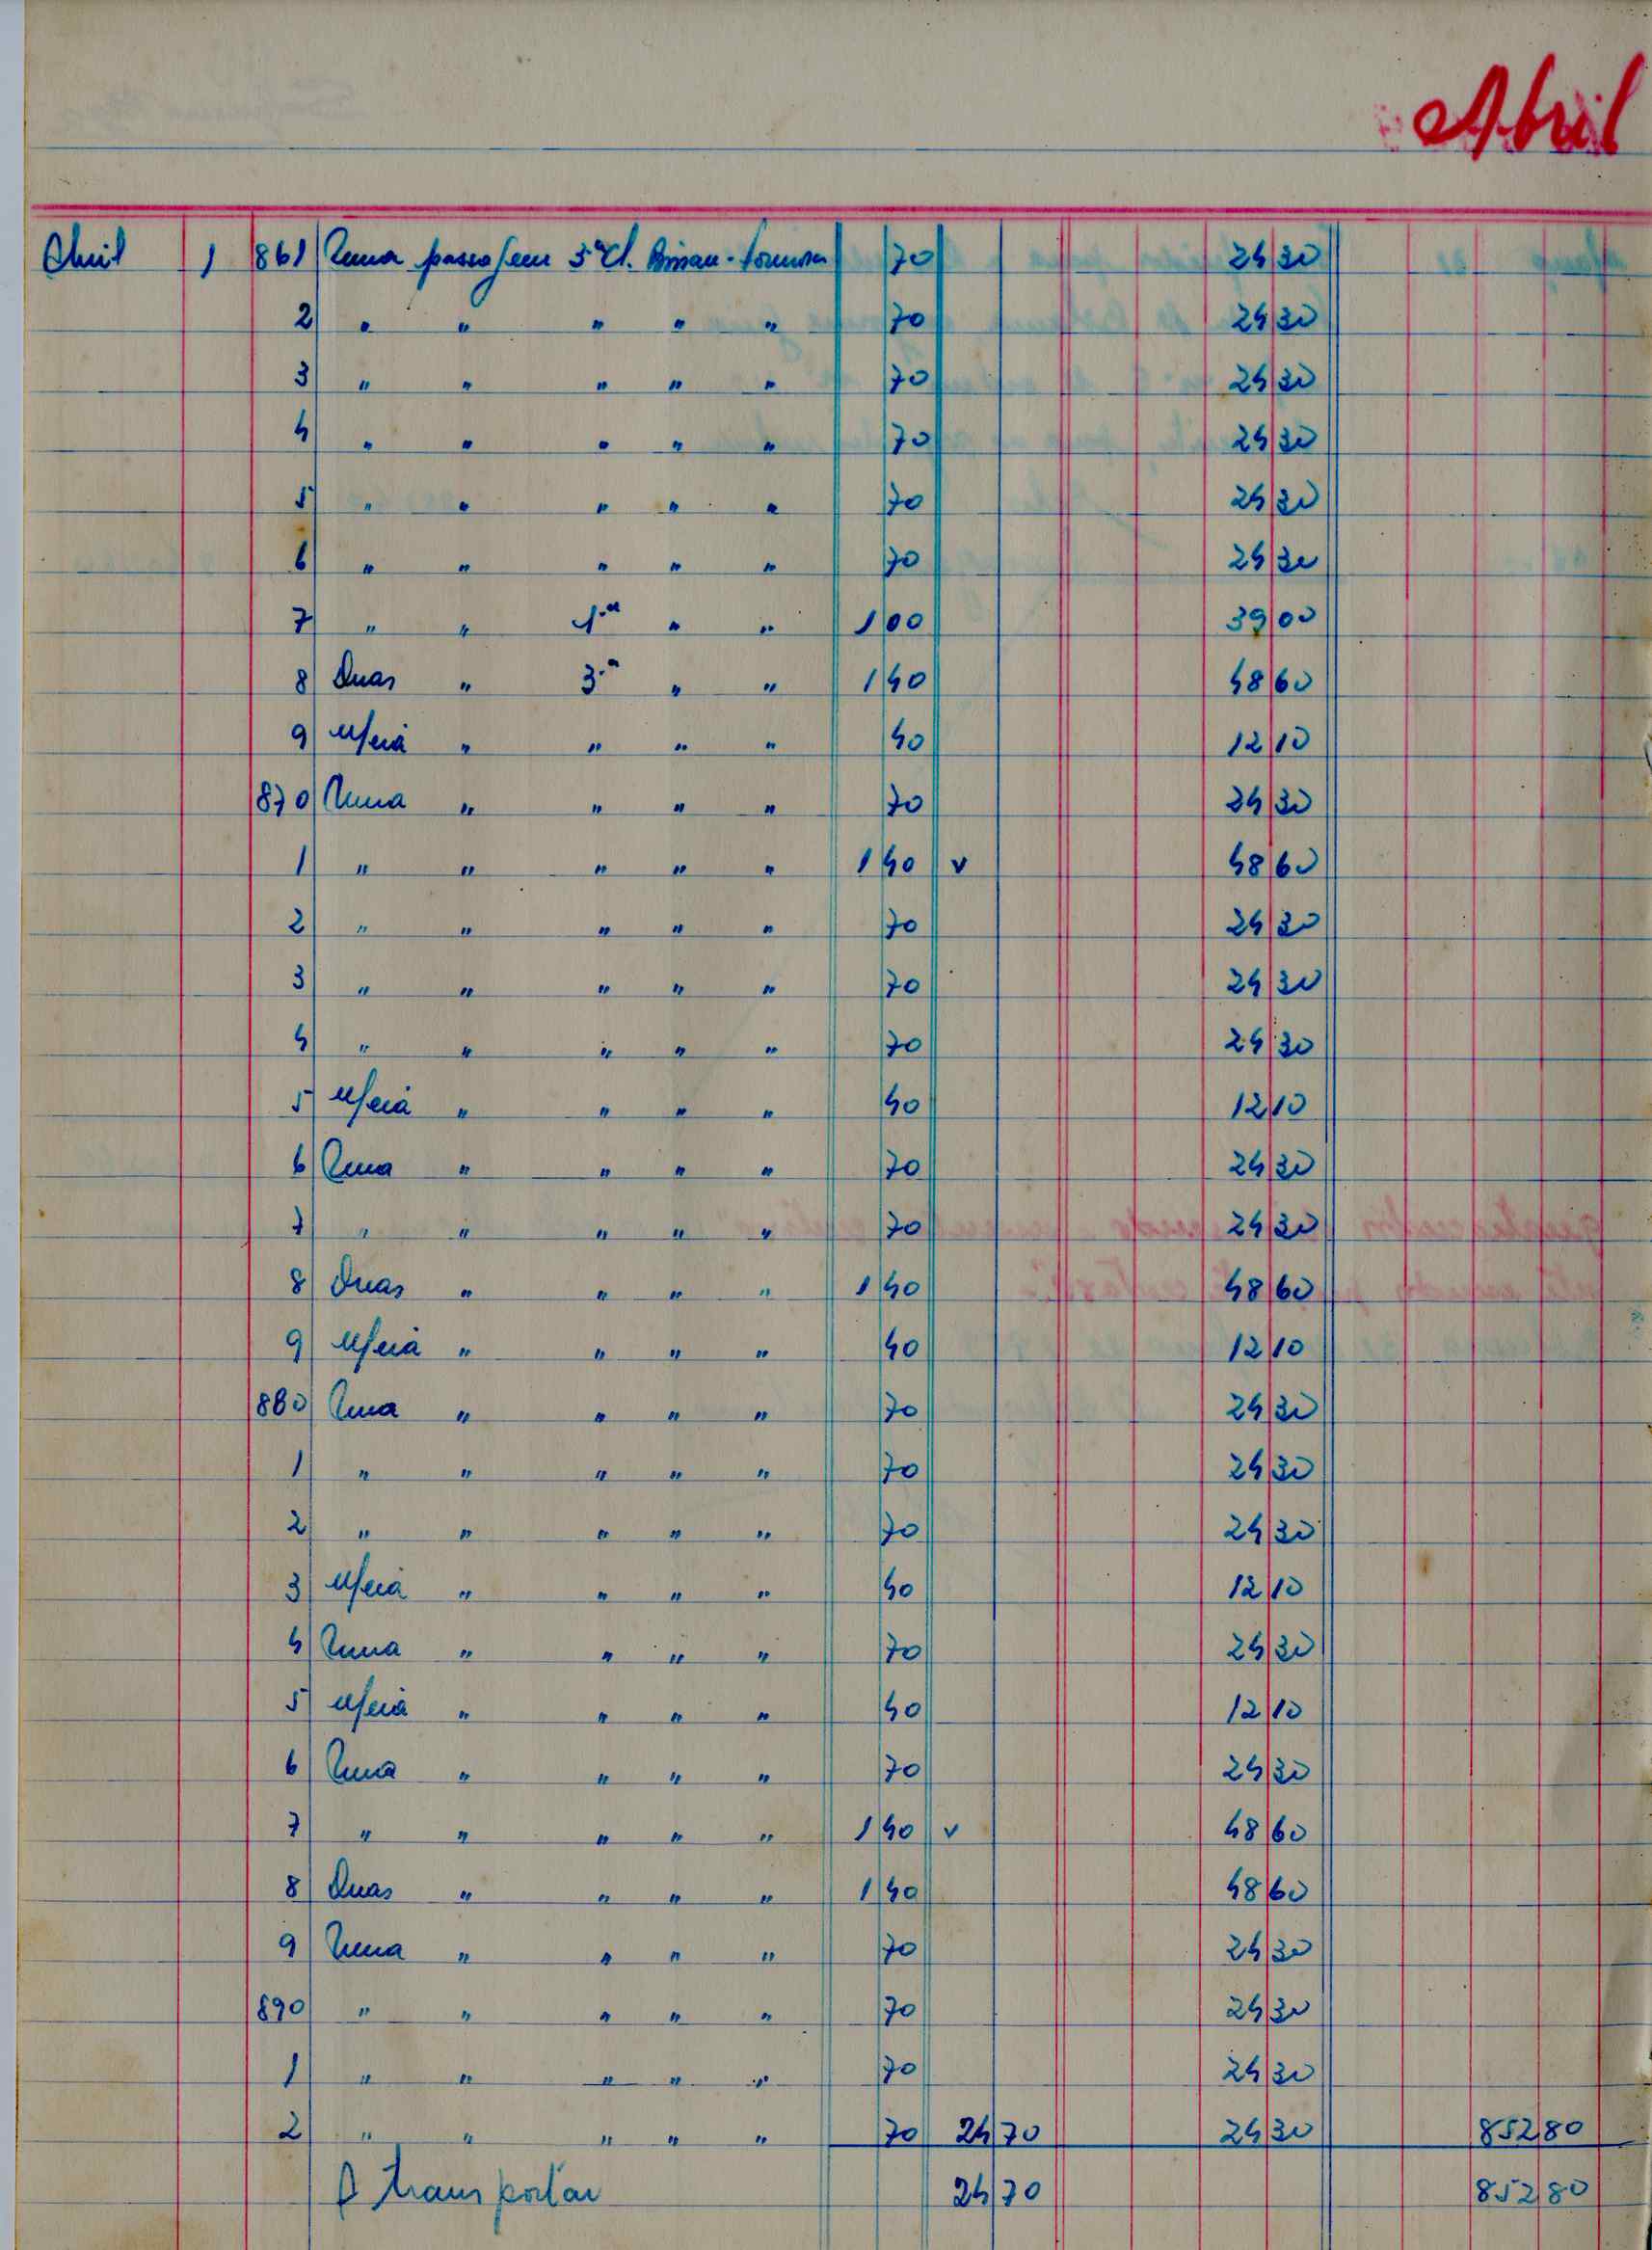 Abril
Abril 1 861 Uma passagem 3ª Cl. Bissau - Formosa 70 24 30
2 " " " " " 70 24 30
3 " " " " " 70 24 30
4 " " " " " 70 24 30
5 " " " " " 70 24 30
6 " " " " " 70 24 30
7 " " 1ª " " 1 00 39 00
8 Duas " 3ª " " 1 40 48 60
9 Meia " " " " 40 12 10
870 Uma " " " " 70 24 30
1 " " " " " 1 40 v 48 60
2 " " " " " 70 24 30
3 " " " " " 70 24 30
4 " " " " " 70 24 30
5 Meia " " " " 40 12 10
6 Uma " " " " 70 24 30
7 " " " " " 70 24 30
8 Duas " " " " 1 40 48 60
9 Meia " " " " 40 12 10
880 Uma " " " " 70 24 30
1 " " " " " 70 24 30
2 " " " " " 70 24 30
3 Meia " " " " 40 12 10
4 Uma " " " " 70 24 30
5 Meia " " " " 40 12 10
6 Uma " " " " 70 24 30
7 " " " " " 1 40 v 48 60
8 Duas " " " " 1 40 48 60
9 Uma " " " " 70 24 30
890 " " " " " 70 24 30
1 " " " " " 70 24 30
2 " " " " " 70 24 70 24 30 852 80
A transportar 24 70 852 80